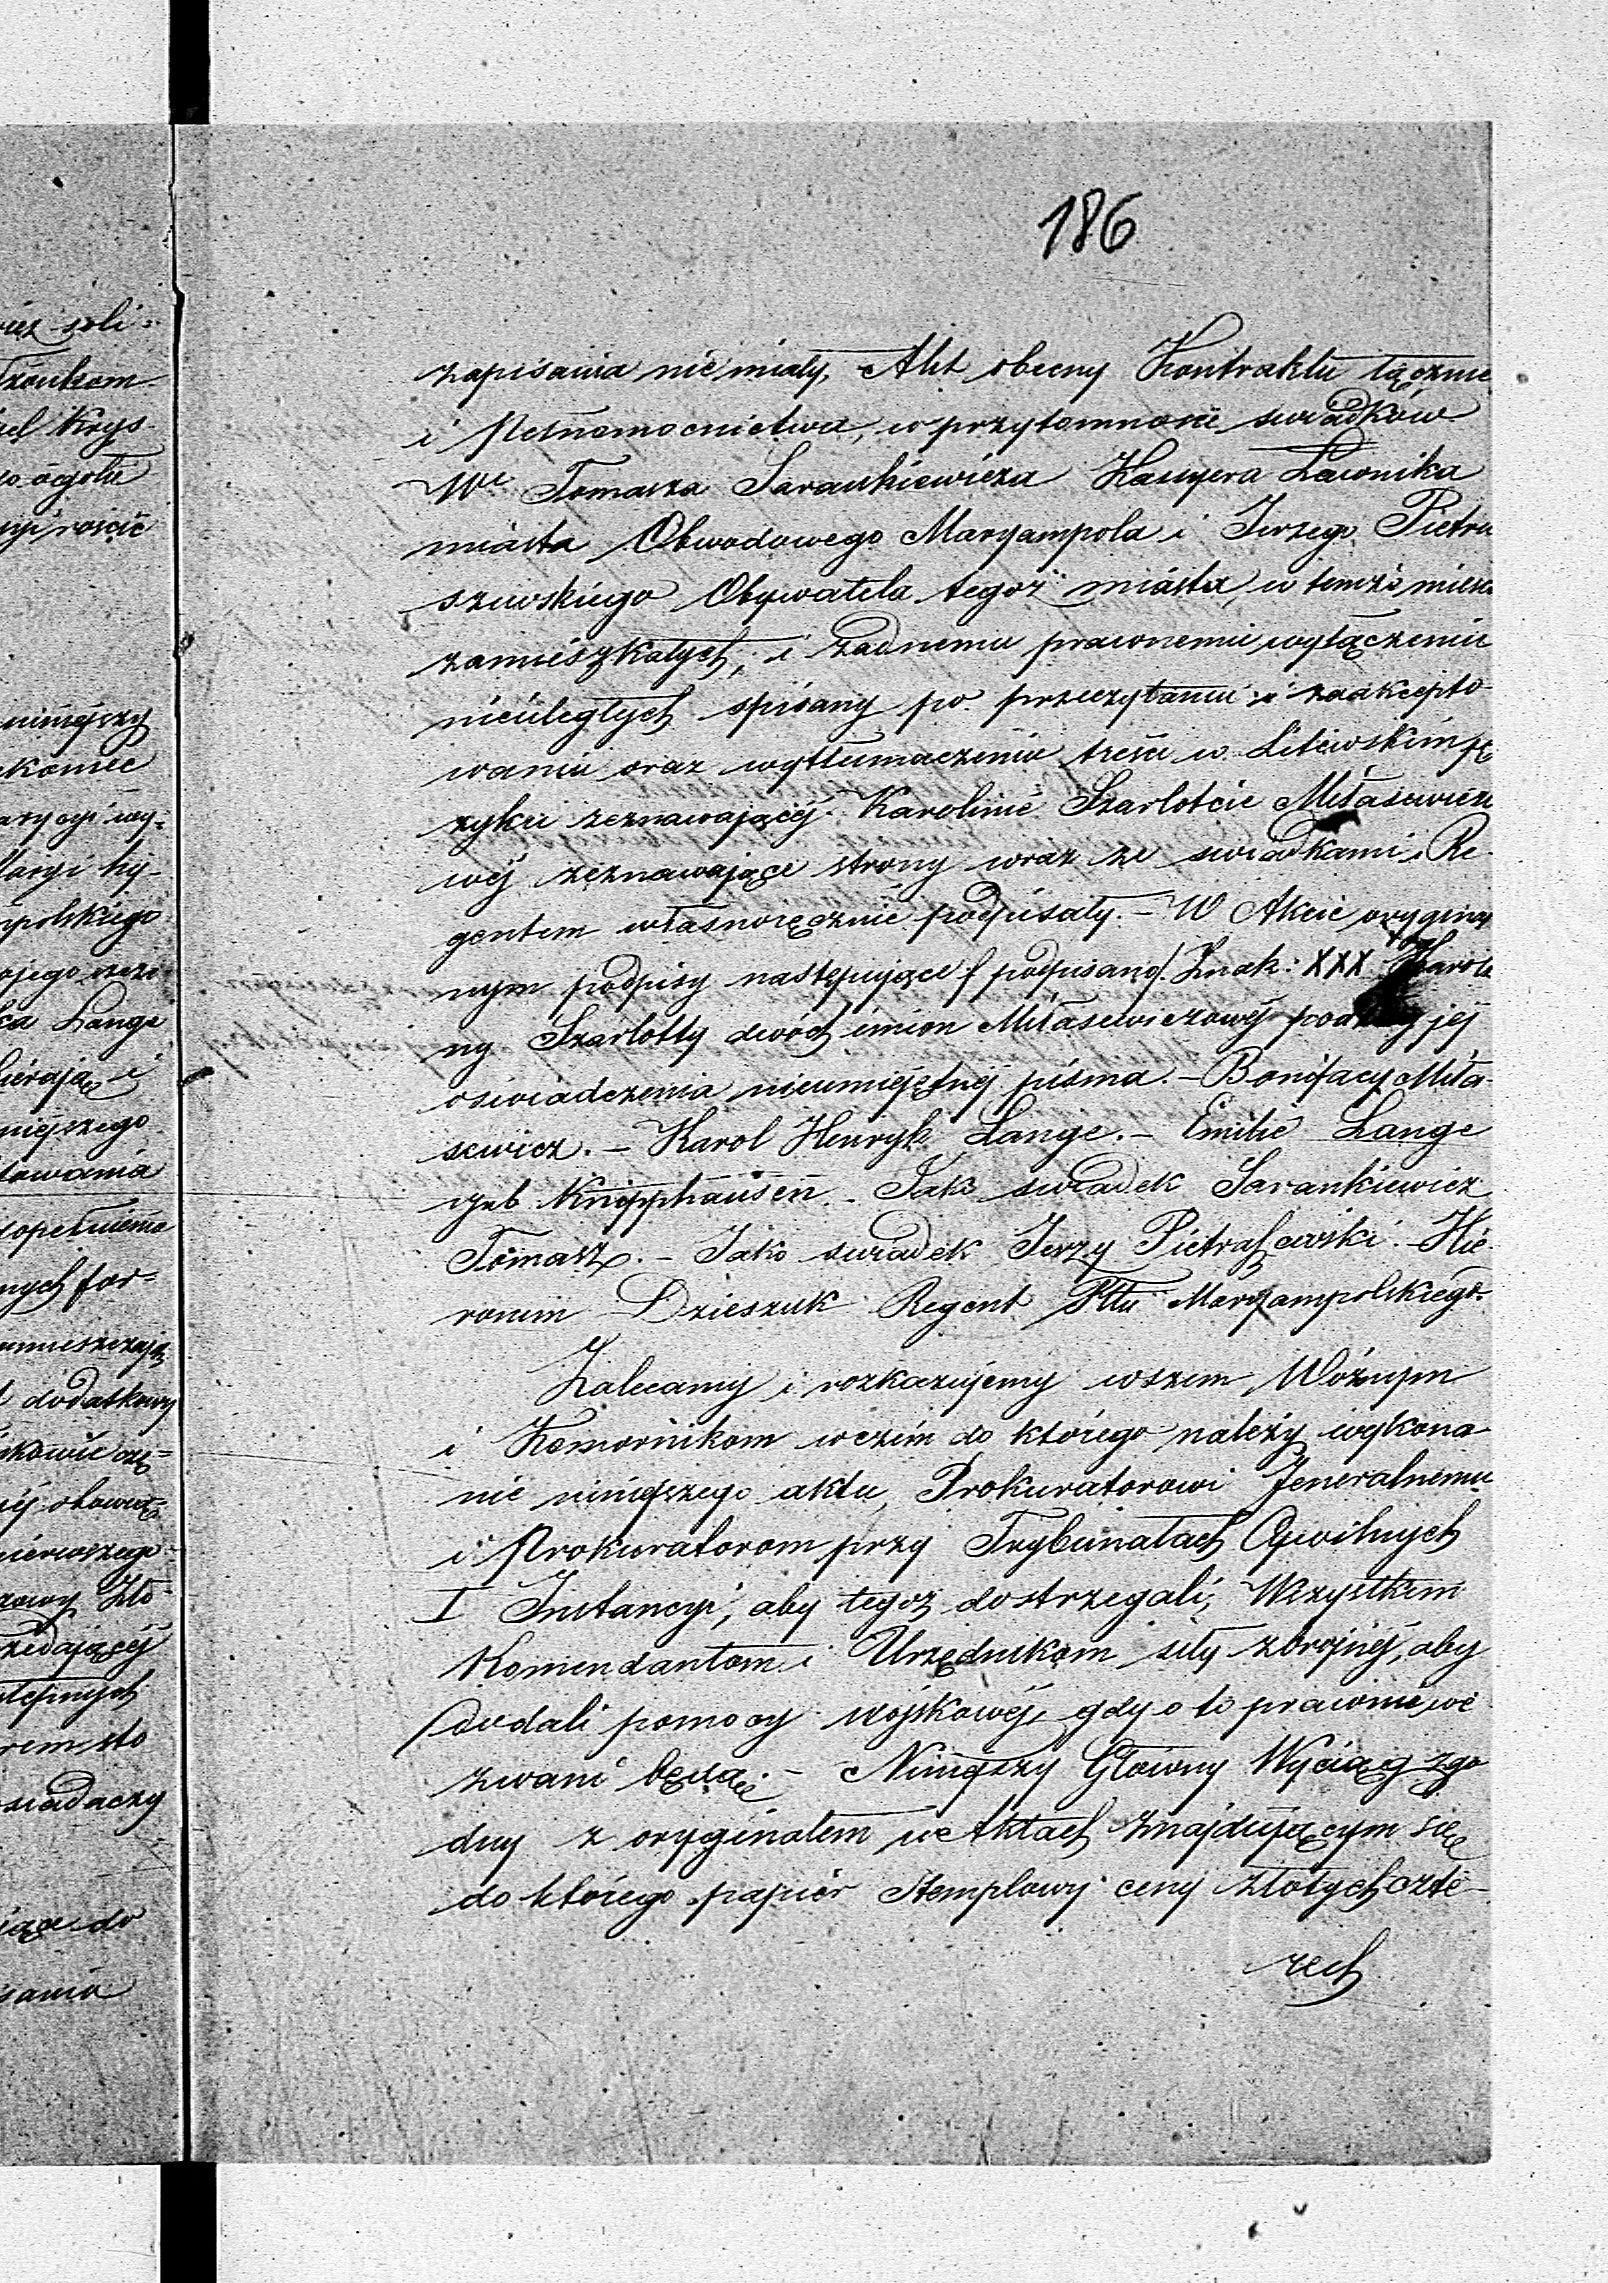 186
zapisania nie miały, Akt obecny Kontraktu łącznie
i Pełnomocnictwa, w przytomności swiadków
We Tomasza Sarankiewicza Kassyera Ławnika
miasta Obwodowego Maryampola i Jerzego Pietra
szewskiego Obywatela tegoż miasta, w temże mieście
zamieszkałych, i żadnemu prawnemu wyłączeniu
nieuległych spisany po przeczytaniu i zaakcepto
waniu oraz wytłumaczeniu treści w Litewskim ję
zyku zeznawającéj Karolinie Szarlotcie Miłasewiczo
wéj zeznawające strony wraz ze swiadkami i Re
gentem własnoręcznie podpisały. – W Akcie oryginal
nym podpisy następujące / podpisano / Znak: XXX Karoli
ny Szarlotty dwóch imion Miłasewiczowéj podług jéj
oswiadczenia nieumiejętnéj pisma. – Bonifacy Miła-
sewicz. – Karol Henryk Lange. – Emilie Lange
geb Knipphausen. Jako swiadek Sarankiewicz
Tomasz. – Jako swiadek Jerzy Pietraszewski. – Hie
ronim Dzieszuk Regent Pttu Maryampolskiego.
Zalecamy i rozkazujemy wszem Woźnym
i Komornikom wczém do którego należy wykona
nie niniejszego aktu, Prokuratorowi Jeneralnemu
i Prokuratorom przy Trybunałach Cywilnych
I Instancyi, aby tegoż dostrzegali, Wszystkim
Komendantom i Urzędnikom siły zbrojnéj, aby
dodali pomocy wojskowéj, gdy o to prawnie we
zwani będą. – Niniejszy Główny Wyciąg zgo
dny z oryginałem w Aktach znajdującym się
do którego papiér Stemplowy ceny złotych czte-
rech